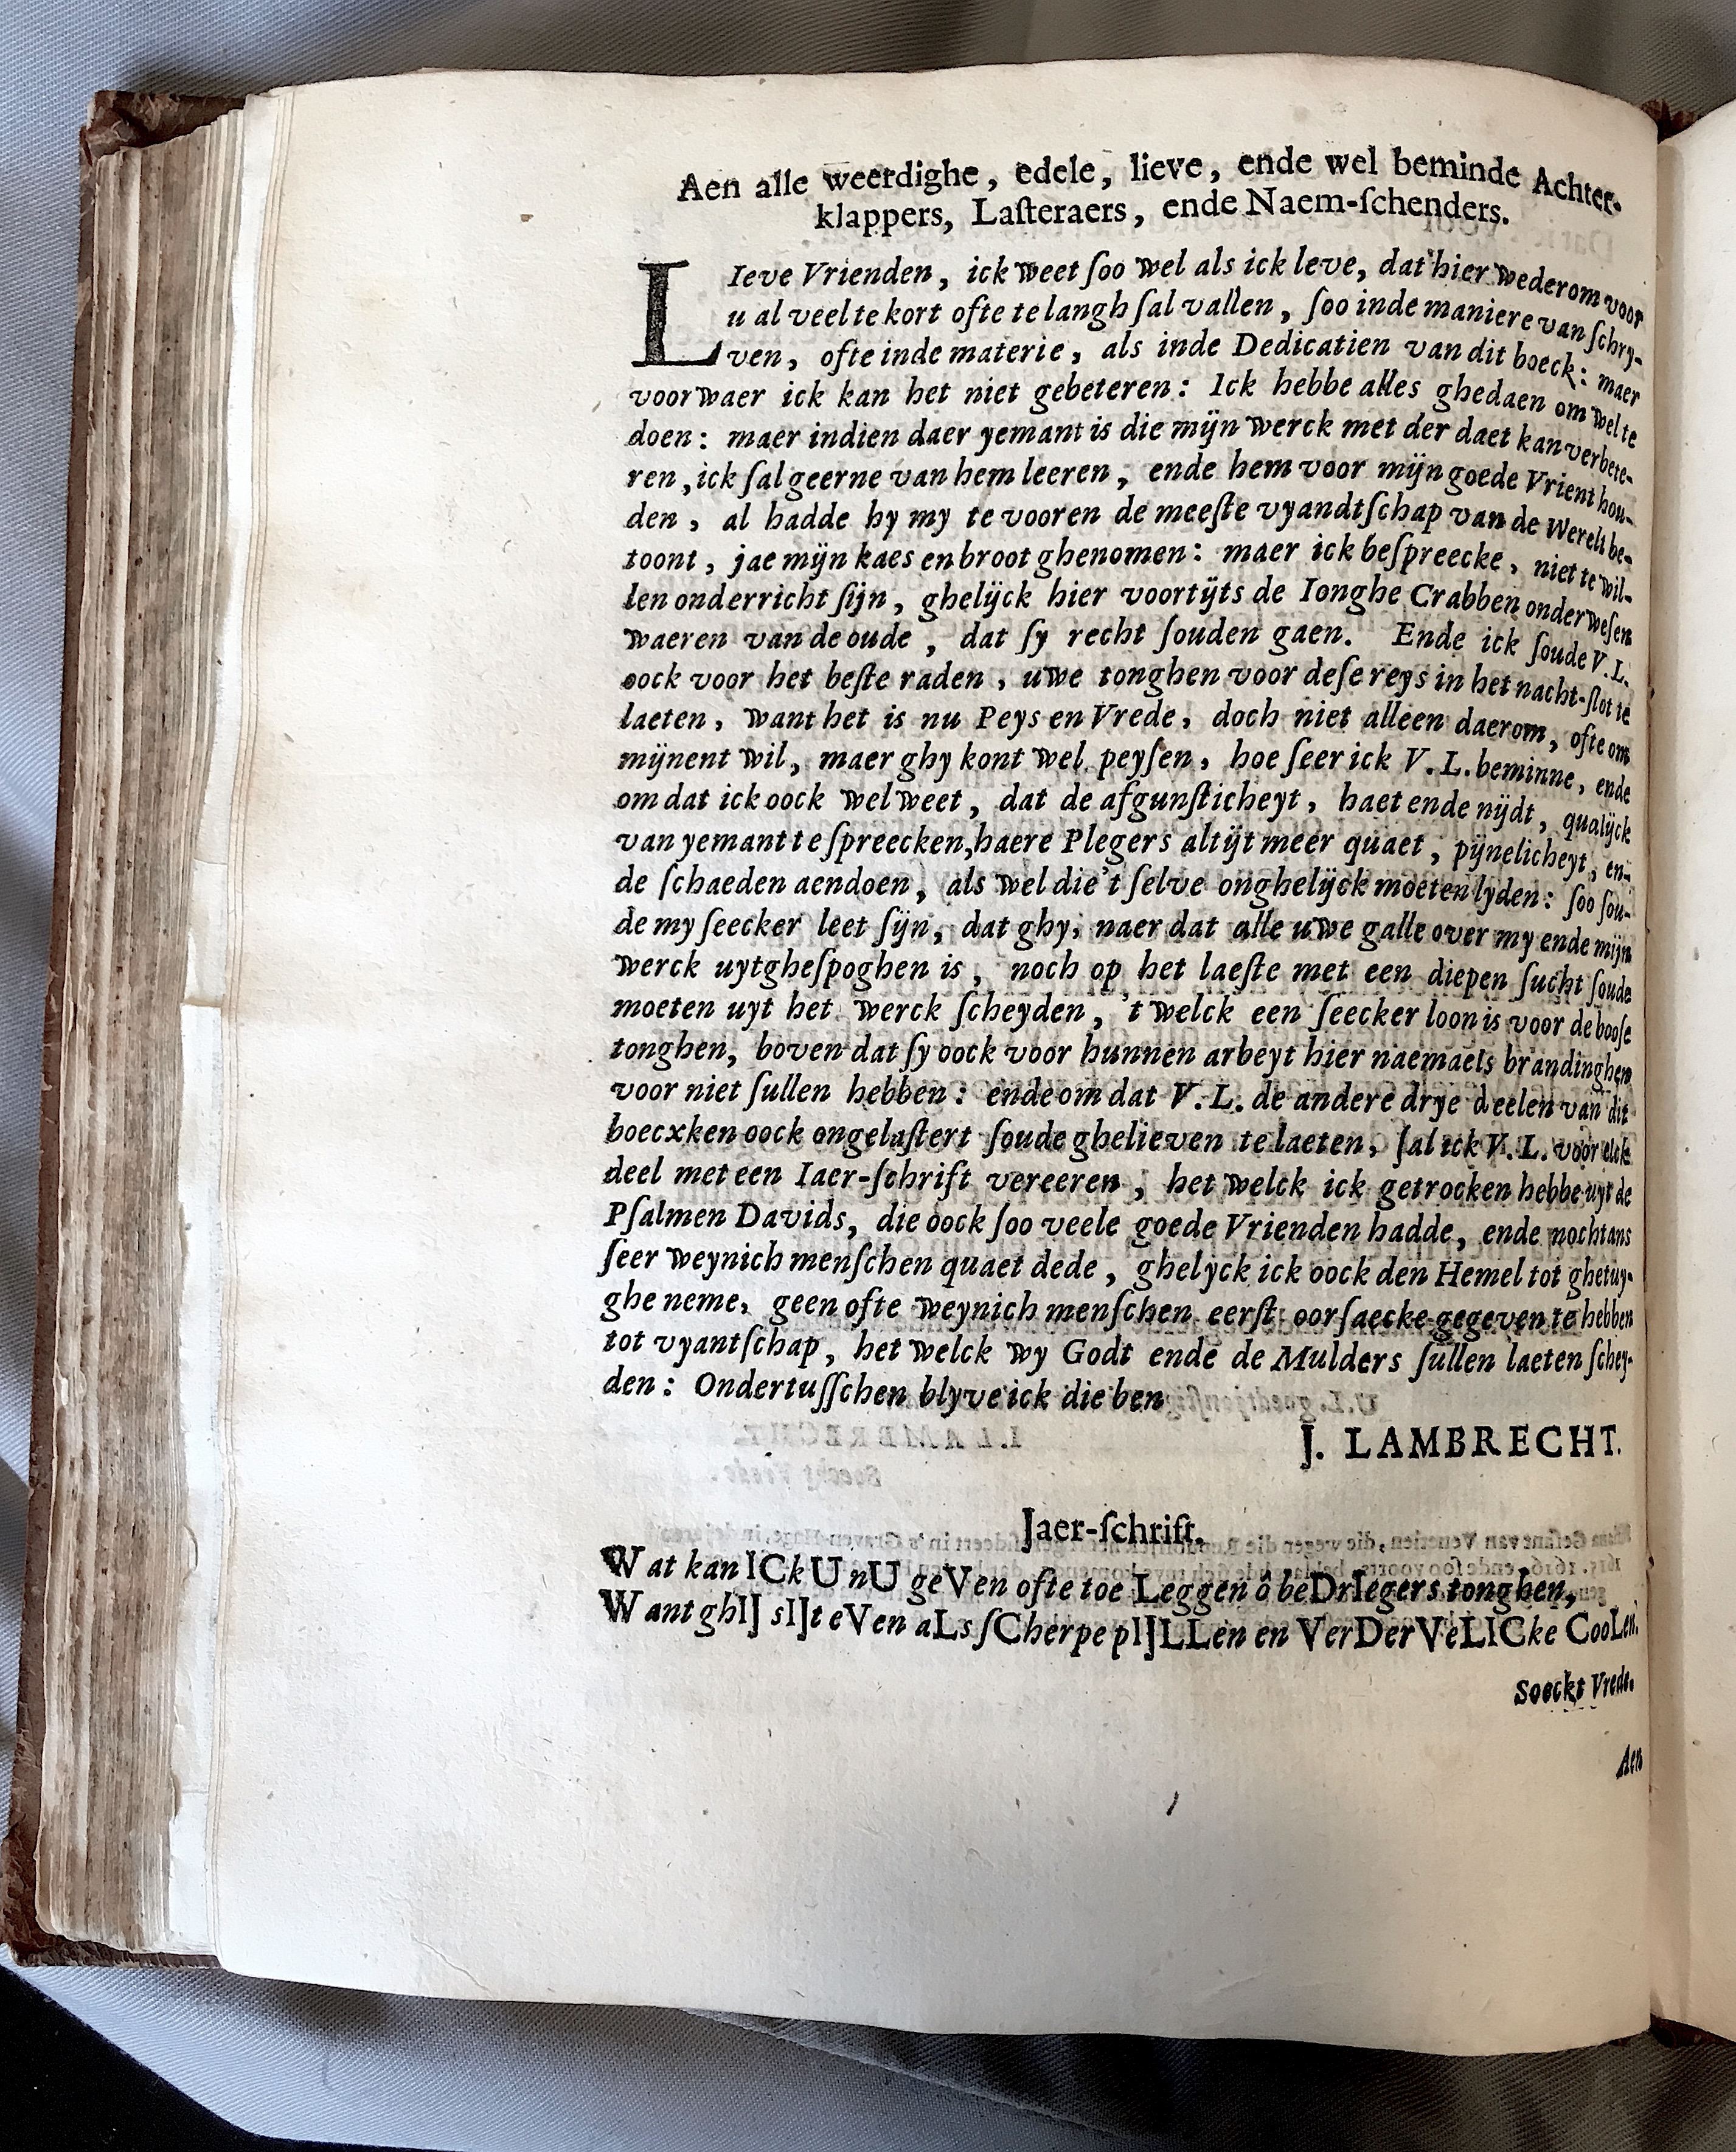 Aen alle weerdighe, edele, lieve, ende wel beminde Achter-
klappers, Laſteraers, ende Naem-ſchenders.
LIeve Vrienden, ick weet ſoo wel als ick leve, dat hier wederom voor
u al veel te kort ofte te langh ſal vallen, ſoo inde maniere van ſchry-
ven, ofte inde materie, als inde Dedicatien van dit boeck: maer
voorwaer ick kan het niet gebeteren: Ick hebbe alles ghedaen om wel te
doen: maer indien daer yemant is die mijn werck met der daet kan verbete-
ren, ick ſal geerne van hem leeren, ende hem voor mijn goede Vrient hou-
den, al hadde hy my te vooren de meeſte vyandtſchap van de Werelt be-
toont, jae mijn kaes en broot ghenomen: maer ick beſpreecke, niet te wil-
len onderricht ſijn, ghelijck hier voortijts de Ionghe Crabben onderweſen
waeren van de oude, dat ſy recht ſouden gaen. Ende ick ſoude V.L.
oock voor het beſte raden, uwe tonghen voor deſe reys in het nacht-ſlot te
laeten, want het is nu Peys en Vrede, doch niet alleen daerom, ofte om
mijnent wil, maer ghy kont wel peyſen, hoe ſeer ick V.L. beminne, ende
om dat ick oock wel weet, dat de afgunſticheyt, haet ende nijdt, qualijck
van yemant te ſpreecken, haere Plegers altijt meer quaet, pijnelicheyt, en-
de ſchaeden aendoen, als wel die't ſelve onghelijck moeten lyden: ſoo ſou-
de my ſeecker leet ſijn, dat ghy, naer dat alle uwe galle over my ende mijn
werck uytgheſpoghen is, noch op het laeſte met een diepen ſucht ſoude
moeten uyt het werck ſcheyden, 't welck een ſeecker loon is voor de booſe
tonghen, boven dat ſy oock voor hunnen arbeyt hier naemaels brandinghen
voor niet ſullen hebben: ende om dat V.L. de andere drye deelen van dit
boecxken oock ongelaſtert ſoude ghelieven te laeten, ſal ick V.L. voor elck
deel met een Iaer-ſchrift vereeren, het welck ick getrocken hebbe uyt de
Pſalmen Davids, die oock ſoo veele goede Vrienden hadde, ende nochtans
ſeer weynich menſchen quaet dede, ghelyck ick oock den Hemel tot ghetuy-
ghe neme, geen ofte weynich menſchen eerſt oorſaecke gegeven te hebben
tot vyantſchap, het welck wy Godt ende de Mulders ſullen laeten ſchey-
den: Ondertuſſchen blyve ick die ben
J. LAMBRECHT.
Jaer-ſchrift.
Wat kan ICk U nU geVen ofte toe Leggen ô beDrIegers tonghen,
Want ghIJ sIJt eVen aLs ſCherpe pIJLLen en VerDerVeLICke CooLen.
Soeckt Vrede.
Aen